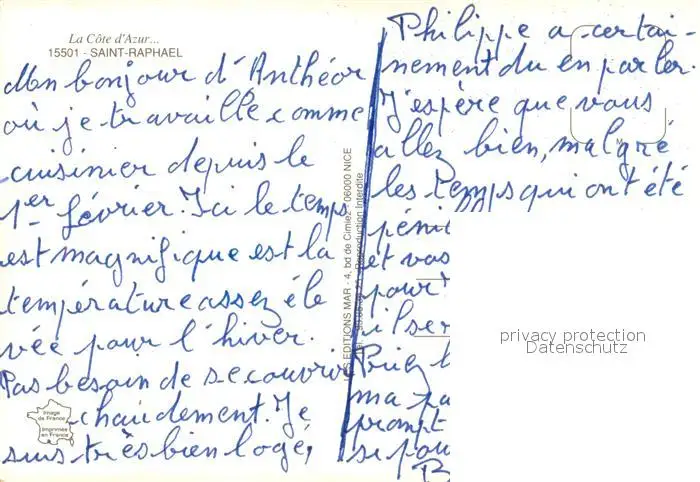 La Côte d'Azur...
15501 - SAINT-RAPHAEL
Mon bonjour d'Anthéor
où je travaille comme
cuisinier depuis le
1er février. Ici le temps
est magnifique est la
température assez éle
vée pour l'hiver.
Pas besoin de se couvrir
chaudement. Je
suis très bien logé,
Image
de France
Imprimée
en France
LES EDITIONS MAR - 4, bd de Cimiez - 06000 NICE
Reproduction interdite
Philippe a certai-
nement du en parler.
J'espère que vous
allez bien, malgré
les temps qui ont été
péni
et vos
pour
il ser
Priez
ma pa
prompt
se pou
privacy protection
Datenschutz